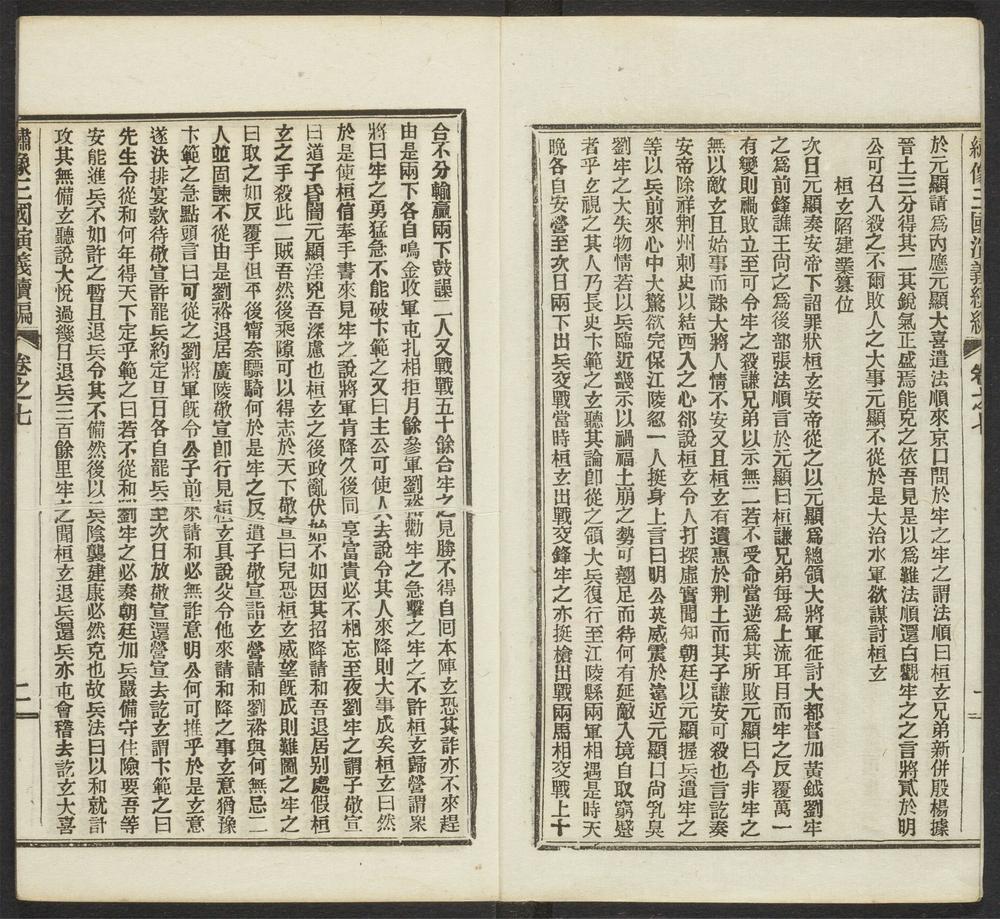 於元顯請爲內應元顯大喜遣法順來京口問於牢之牢之謂法順曰桓玄兄弟新併殷楊據
晉土三分得其二其銳氣正盛焉能克之依吾見是以爲難法順還白觀牢之之言將貳於明
公可召入殺之不爾敗人之大事元顯不從於是大治水軍欲謀討桓玄
桓玄陷建業篡位
次日元顯奏安帝下詔罪狀桓玄安帝從之以元顯爲總領大將軍征討大都督加黃鉞劉牢
之爲前鋒譙王尙之爲後部張法順言於元顯曰桓謙兄弟每爲上流耳目而牢之反覆萬一
有變則禍敗立至可令牢之殺謙兄弟以示無二若不受命當逆爲其所敗元顯曰今非牢之
無以敵玄且始事而誅大將人情不安又且桓玄有遺惠於荆土而其子謙安可殺也言訖奏
安帝除祥荆州刺史以結西人之心郤說桓玄令人打探虛實聞知朝廷以元顯握兵遣牢之
等以兵前來心中大驚欲完保江陵忽一人挺身上言曰明公英威震於遠近元顯口尙乳臭
劉牢之大失物情若以兵臨近畿示以禍福土崩之勢可翹足而待何有延敵入境自取窮蹙
者乎玄視之其人乃長史卞範之玄聽其論卽從之領大兵復行至江陵縣兩軍相遇是時天
晚各自安營至次日兩下出兵交戰當時桓玄出戰交鋒牢之亦挺槍出戰兩馬相交戰上十
繡像三國演義續編 卷之七
合不分輸贏兩下鼓譟二人又戰戰五十餘合牢之見勝不得自囘本陣玄恐其詐亦不來趕
由是兩下各自鳴金收軍屯扎相拒月餘參軍劉裕勸牢之急擊之牢之不許桓玄歸營謂衆
將曰牢之勇猛急不能破卞範之又曰主公可使人去說令其人來降則大事成矣桓玄曰然
於是使桓信奉手書來見牢之說將軍肯降久後同享富貴必不相忘至夜劉牢之謂子敬宣
曰道子昏闇元顯淫兇吾深慮也桓玄之後政亂伏始如不如因其招降請和吾退居別處假桓
玄之手殺此二賊吾然後乘隙可以得志於天下敬宣曰兒恐桓玄威望旣成則難圖之牢之
曰取之如反覆手但平後甯奈驃騎何於是牢之反遣子敬宣詣玄營請和劉裕與何無忌二
人並固諫不從由是劉裕退居廣陵敬宣卽行見桓玄具說父令他來請和降之事玄意猶豫
卞範之急點頭言曰可從之劉將軍旣令公子前來請和必無詐意明公何可推乎於是玄意
遂決排宴款待敬宣許罷兵約定旦日各自罷兵至次日放敬宣還營宣去訖玄謂卞範之曰
先生令從和何年得天下定乎範之曰若不從和劉牢之必奏朝廷加兵嚴備守住險要吾等
安能進兵不如許之暫且退兵令其不備然後以兵陰襲建康必然克也故兵法曰以和就計
攻其無備玄聽說大悅過幾日退兵三百餘里牢之聞桓玄退兵還兵亦屯會稽去訖玄大喜
繡像三國演義續編 卷之七 二